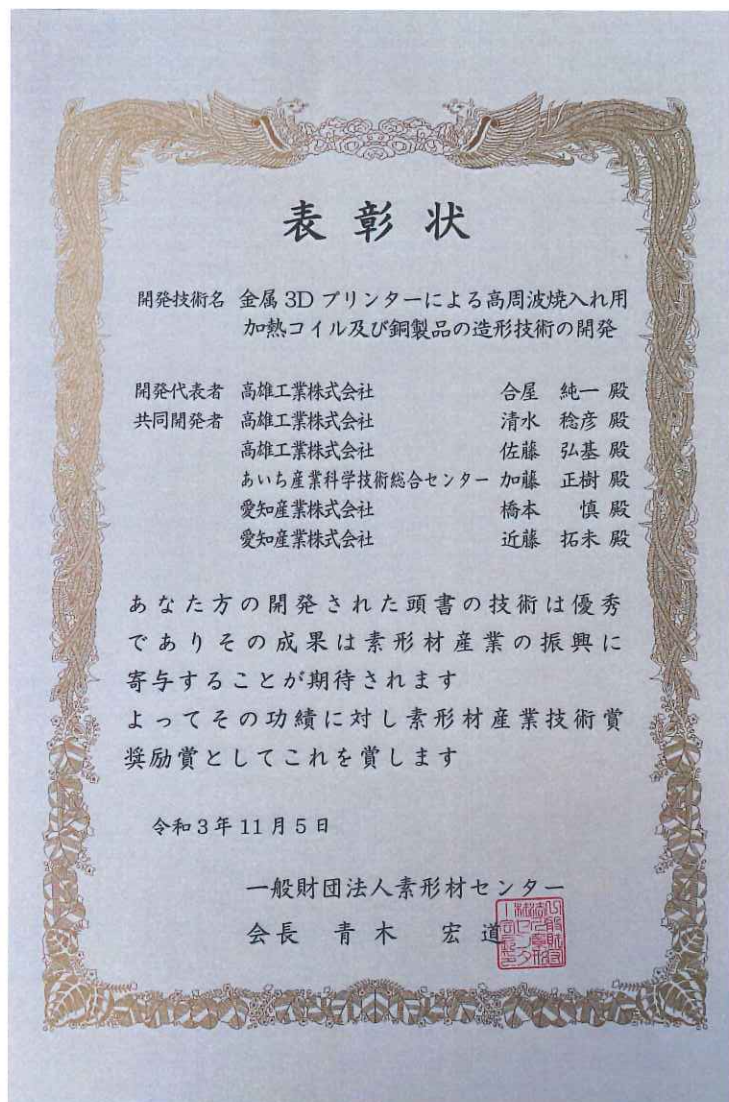 表彰状
開発技術名 金属3Dプリンターによる高周波焼入れ用
加熱コイル及び銅製品の造形技術の開発
開発代表者 高雄工業株式会社 合屋 純一 殿
共同開発者 高雄工業株式会社 清水 稔彦 殿
高雄工業株式会社 佐藤 弘基 殿
あいち産業科学技術総合センター 加藤 正樹 殿
愛知産業株式会社 橋本 慎 殿
愛知産業株式会社 近藤 拓未 殿
あなた方の開発された頭書の技術は優秀
でありその成果は素形材産業の振興に
寄与することが期待されます
よってその功績に対し素形材産業技術賞
奨励賞としてこれを賞します
令和3年11月5日
一般財団法人素形材センター
会長 青木 宏道